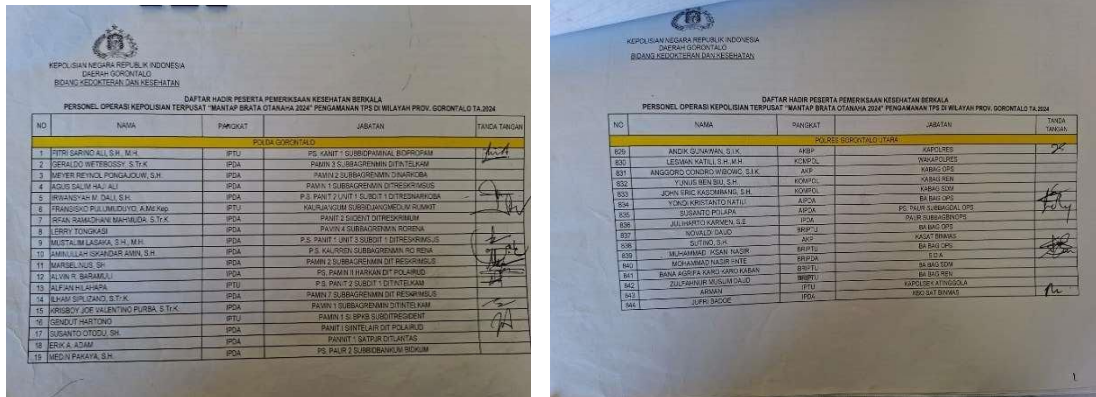 KEPOLISIAN NEGARA REPUBLIK INDONESIA
DAERAH GORONTALO
BIDANG KEDOKTERAN DAN KESEHATAN
DAFTAR HADIR PESERTA PEMERIKSAAN KESEHATAN BERKALA
PERSONEL OPERASI KEPOLISIAN TERPUSAT "MANTAP BRATA OTANAHA 2024" PENGAMANAN TPS DI WILAYAH PROV. GORONTALO TA.2024
NO NAMA PANGKAT JABATAN TANDA TANGAN
POLDA GORONTALO
1 FITRI SARINO ALI, S.H., M.H. IPTU PS. KANIT 1 SUBBIDPAMINAL BIDPROPAM
2 GERALDO WETEBOSSY, S.Tr.K IPDA PAMIN 3 SUBBAGRENMIN DITINTELKAM
3 MEYER REYNOL PONGAJOUW, S.H. IPDA PAMIN 2 SUBBAGRENMIN DITNARKOBA
4 AGUS SALIM HAJI ALI IPDA PAMIN 1 SUBBAGRENMIN DITRESKRIMSUS
5 IRWANSYAH M. DALI, S.H. IPDA P.S. PANIT 1 UNIT 1 SUBDIT 1 DITRESNARKOBA
6 FRANSISKO PULUMUDUYO, A.Md.Kep IPTU
7 IRFAN RAMADHANI MAHMUDA, S.Tr.K IPDA PANIT 2 SIIDENT DITRESKRIMUM
8 LERRY TONGKASI IPDA PAMIN 4 SUBBAGRENMIN RORENA
9 MUSTALIM LASAKA, S.H., M.H. IPDA P.S. PANIT 1 UNIT 3 SUBDIT 1 DITRESKRIMSUS
10 AMINULLAH ISKANDAR AMIN, S.H IPDA P.S. KAURREN SUBBAGRENMIN RO RENA
11 MARSELINUS, SH IPDA PAMIN 2 SUBBAGRENMIN DIT RESKRIMSUS
12 ALVIN R. BARAMULI IPDA PS. PAMIN 1 HARKAN DIT POLAIRUD
13 ALFIAN HILAHAPA IPTU PS. PANIT 2 SUBDIT 1 DITINTELKAM
14 ILHAM SIPLIZANO, S.Tr.K IPDA PAMIN 7 SUBBAGRENMIN DIT RESKRIMSUS
15 KRISBOY JOE VALENTINO PURBA, S.Tr.K IPDA PAMIN 1 SUBBAGRENMIN DITINTELKAM
16 GENDUT HARTONO IPTU PAMIN 1 SI BPKB SUBDITREGIDENT
17 SUSANTO OTODU, SH. IPDA PANIT 1 SIINTELAIR DIT POLAIRUD
18 ERIK A. ADAM IPDA PANNIT 1 SATPJR DITLANTAS
19 MEDIN PAKAYA, S.H. IPDA PS. PAUR 2 SUBBIDBANKUM BIDKUM
KEPOLISIAN NEGARA REPUBLIK INDONESIA
DAERAH GORONTALO
BIDANG KEDOKTERAN DAN KESEHATAN
DAFTAR HADIR PESERTA PEMERIKSAAN KESEHATAN BERKALA
PERSONEL OPERASI KEPOLISIAN TERPUSAT "MANTAP BRATA OTANAHA 2024" PENGAMANAN TPS DI WILAYAH PROV. GORONTALO TA.2024
NO NAMA PANGKAT JABATAN TANDA TANGAN
POLRES GORONTALO UTARA
829 ANDIK GUNAWAN, S.I.K. AKBP KAPOLRES
830 LESMAN KATILI, S.H., M.H. KOMPOL WAKAPOLRES
831 ANGGORO CONDRO WIBOWO, S.I.K. AKP KABAG OPS
832 YUNUS BEN BIU, S.H. KOMPOL KABAG REN
833 JOHN ERIC KASOMBANG, S.H. KOMPOL KABAG SDM
834 YONDI KRISTANTO KATILI AIPDA BA BAG OPS
835 SUSANTO POLAPA AIPDA PS. PAUR SUBBAGDAL OPS
836 JULIHARTO KARMEN, S.E IPDA PAUR SUBBAGBINOPS
837 NOVALDI DAUD BRIPTU BA BAG OPS
838 SUTINO, S.H. AKP KASAT BINMAS
839 MUHAMMAD IKSAN NASIR BRIPTU BA BAG OPS
840 MOHAMMAD NASIR ENTE BRIPDA S.D.A
841 BANA AGRIFA KARO KARO KABAN BRIPTU BA BAG SDM
842 ZULFAHNUR MUSLIM DAUD BRIPTU BA BAG REN
843 ARMAN IPTU KAPOLSEK ATINGGOLA
844 JUPRI BADOE IPDA KBO SAT BINMAS